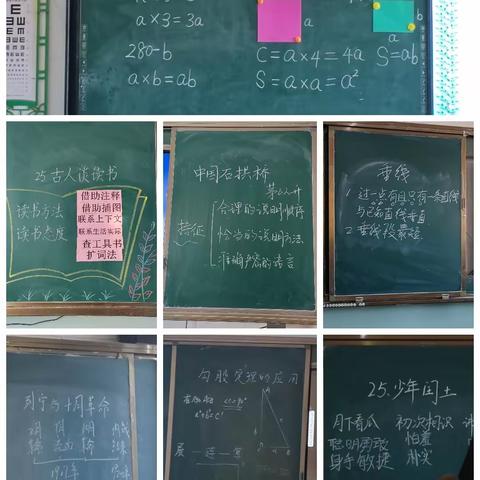 a×3=3a
280-b
a×b=ab
a
C=a×4=4a
S=a×a=a²
b
a
S=ab
25古人谈读书
读书方法
读书态度
借助注释
借助插图
联系上下文
联系生活实际
查工具书
扩词法
中国石拱桥
茅以升
特征
合理的说明顺序
恰当的说明方法
准确严密的语言
垂线
1.过一点有且只有一条直线
与已知直线垂直
2.垂线段最短
列宁与十月革命
1917年
勾股定理的应用
展
25.少年闰土
月下看瓜
初次相识
聪明勇敢
怕羞
身手敏捷